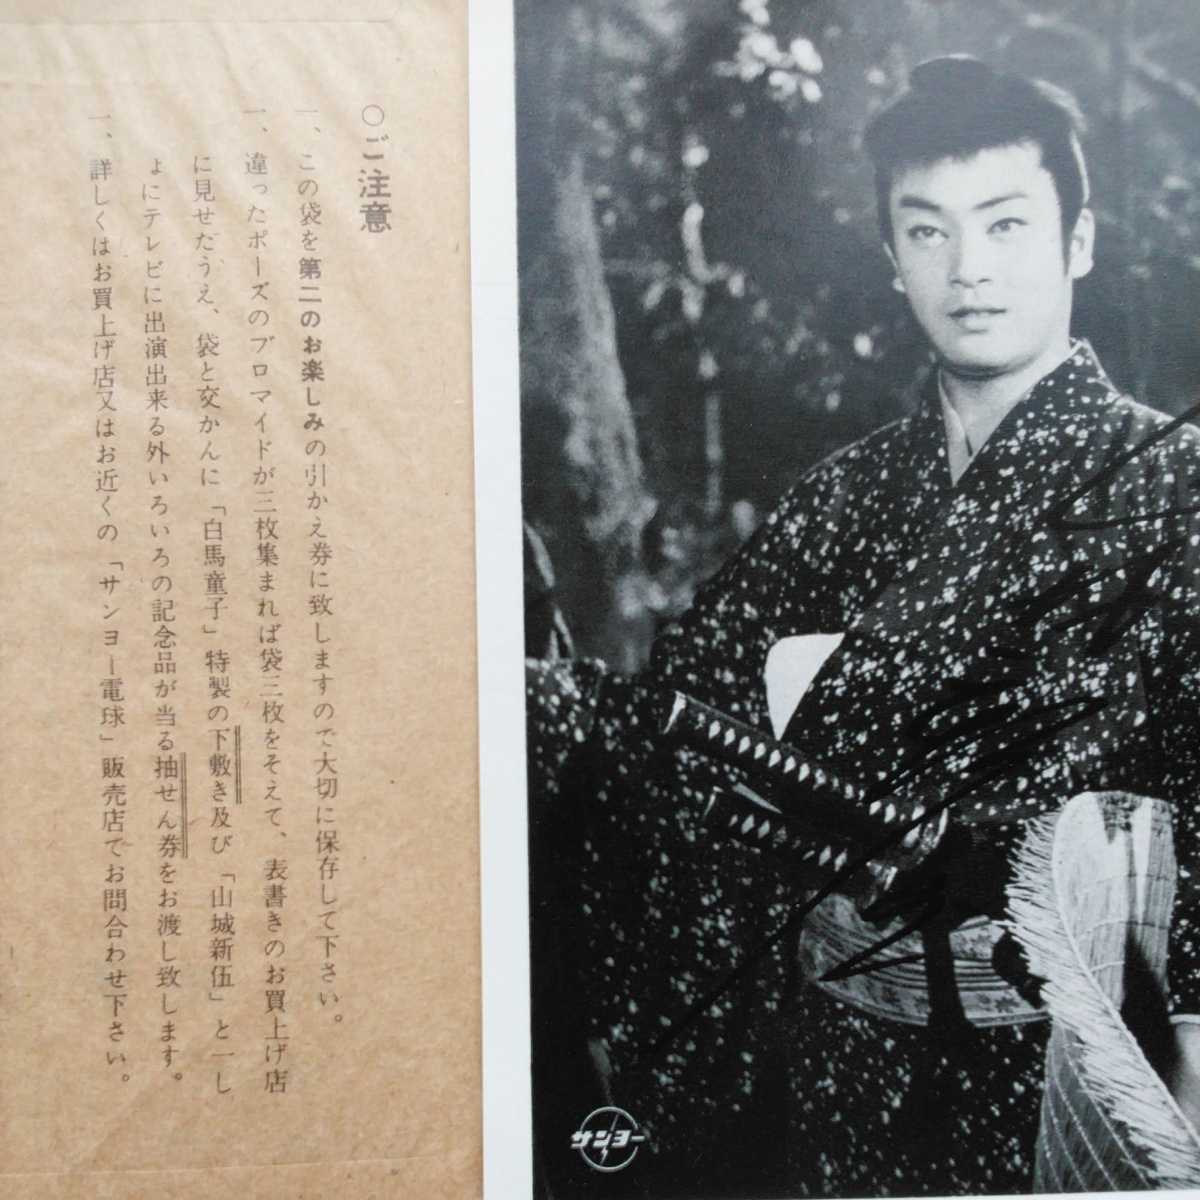 ○ご注意
一、この袋を第二のお楽しみの引かえ券に致しますので大切に保存して下さい。
一、違ったポーズのブロマイドが三枚集まれば袋三枚をそえて、表書きのお買上げ店
に見せたうえ、袋と交かんに「白馬童子」特製の下敷き及び「山城新伍」と一し
ょにテレビに出演出来る外いろいろの記念品が当る抽せん券をお渡し致します。
一、詳しくはお買上げ店又はお近くの「サンヨー電球」販売店でお問合わせ下さい。
サンヨー